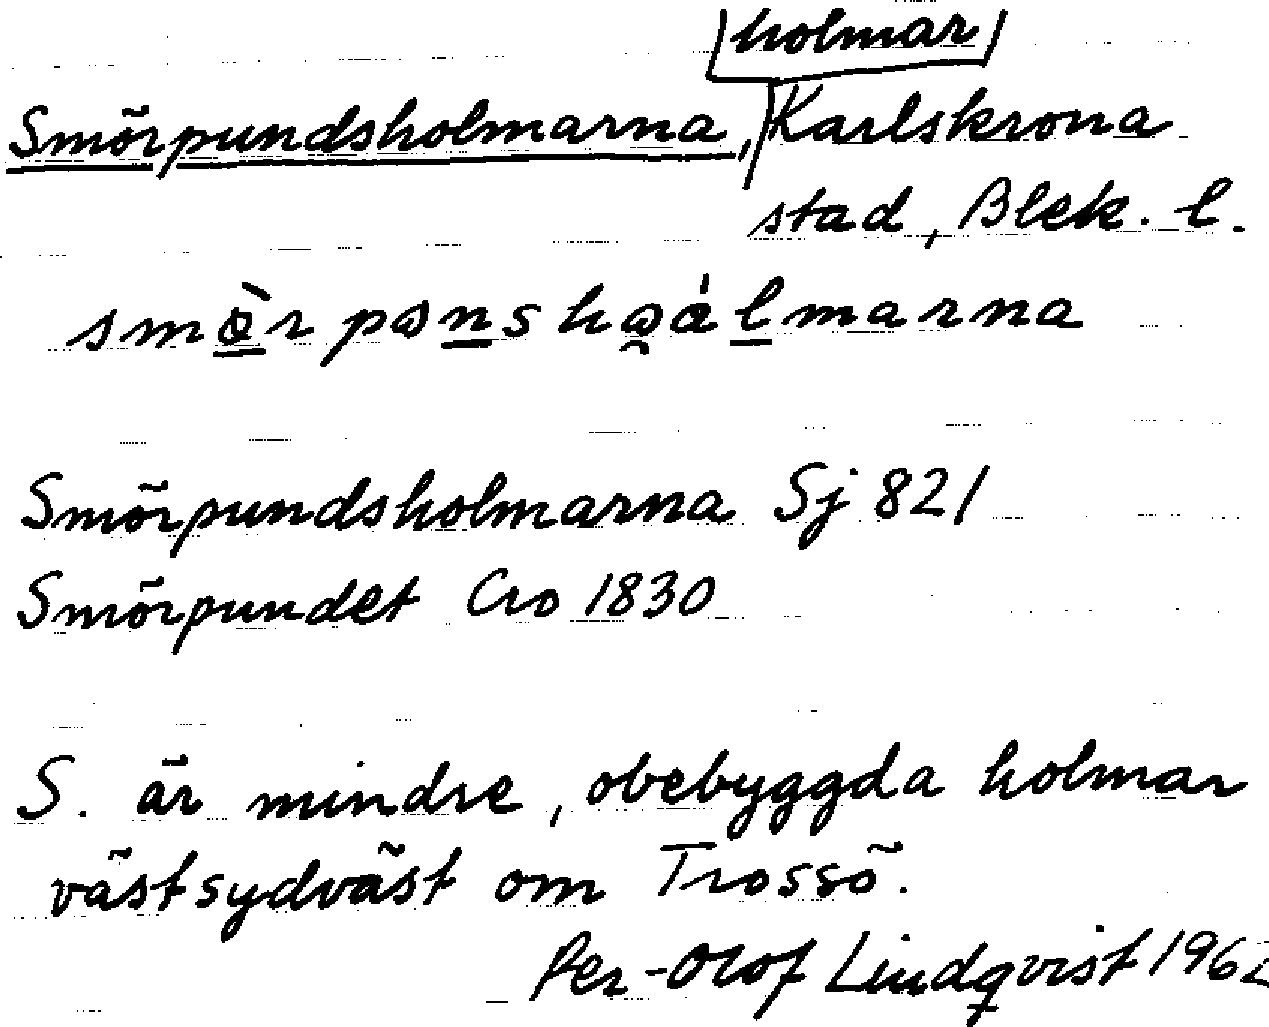 holmar
Smörpundsholmarna, Karlskrona
stad, Blek. l.
Smörpundsholmarna Sj 821
Smörpundet Cro 1830
S. är mindre, obebyggda holmar
västsydväst om Trossö.
Per-Olof Lindqvist 1962